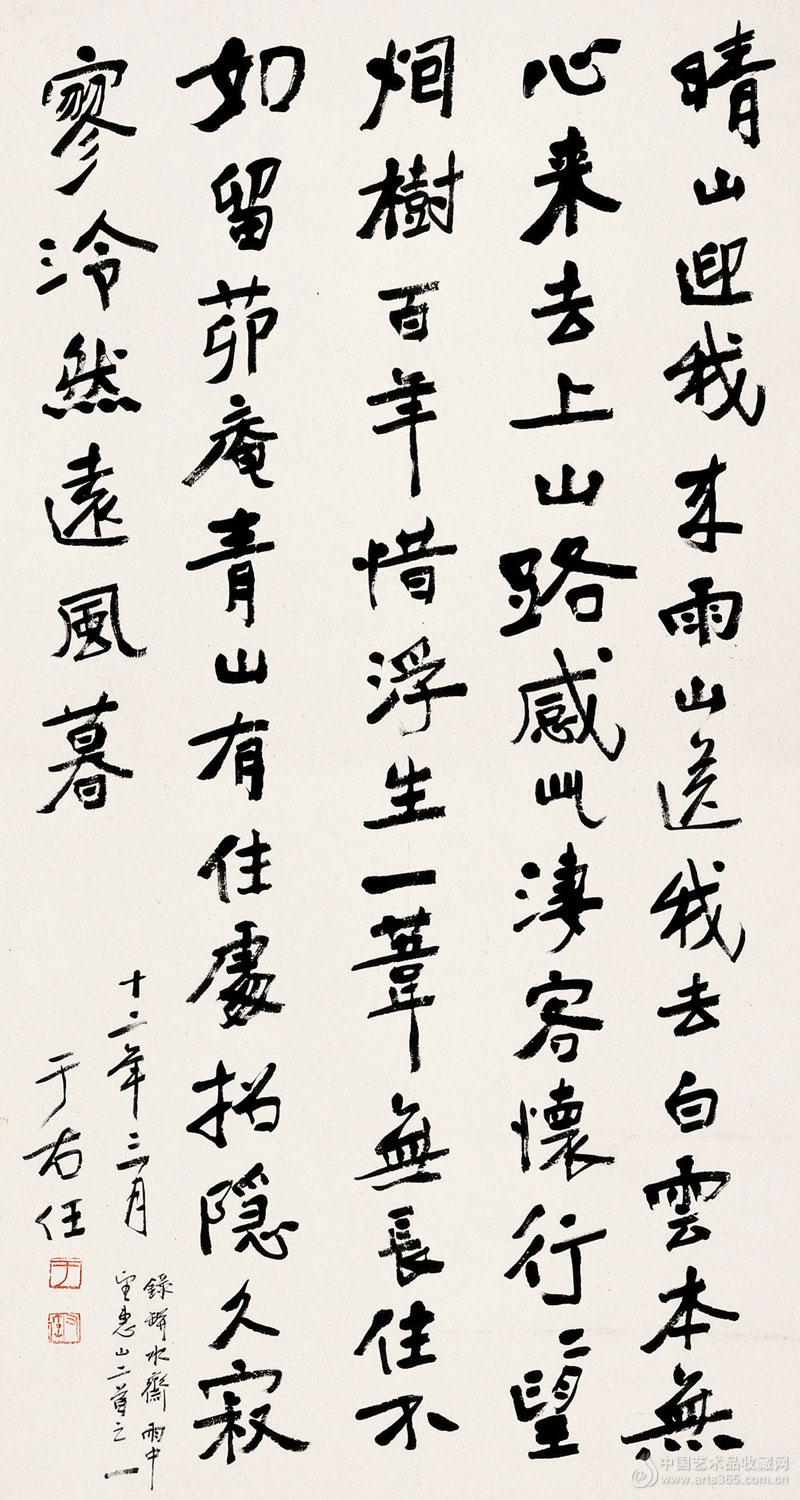 晴山迎我來雨山送我去白雲本無
心来去上山路感此淒客懷行〻望
烟樹百年惜浮生一葦無長住不
如留茆庵青山有住處招隱久寂
寥泠然遠風暮
十二年三月
于右任
錄 水齋雨中
望惠山二首之一
中国艺术品收藏网
www.arts365.com.cn